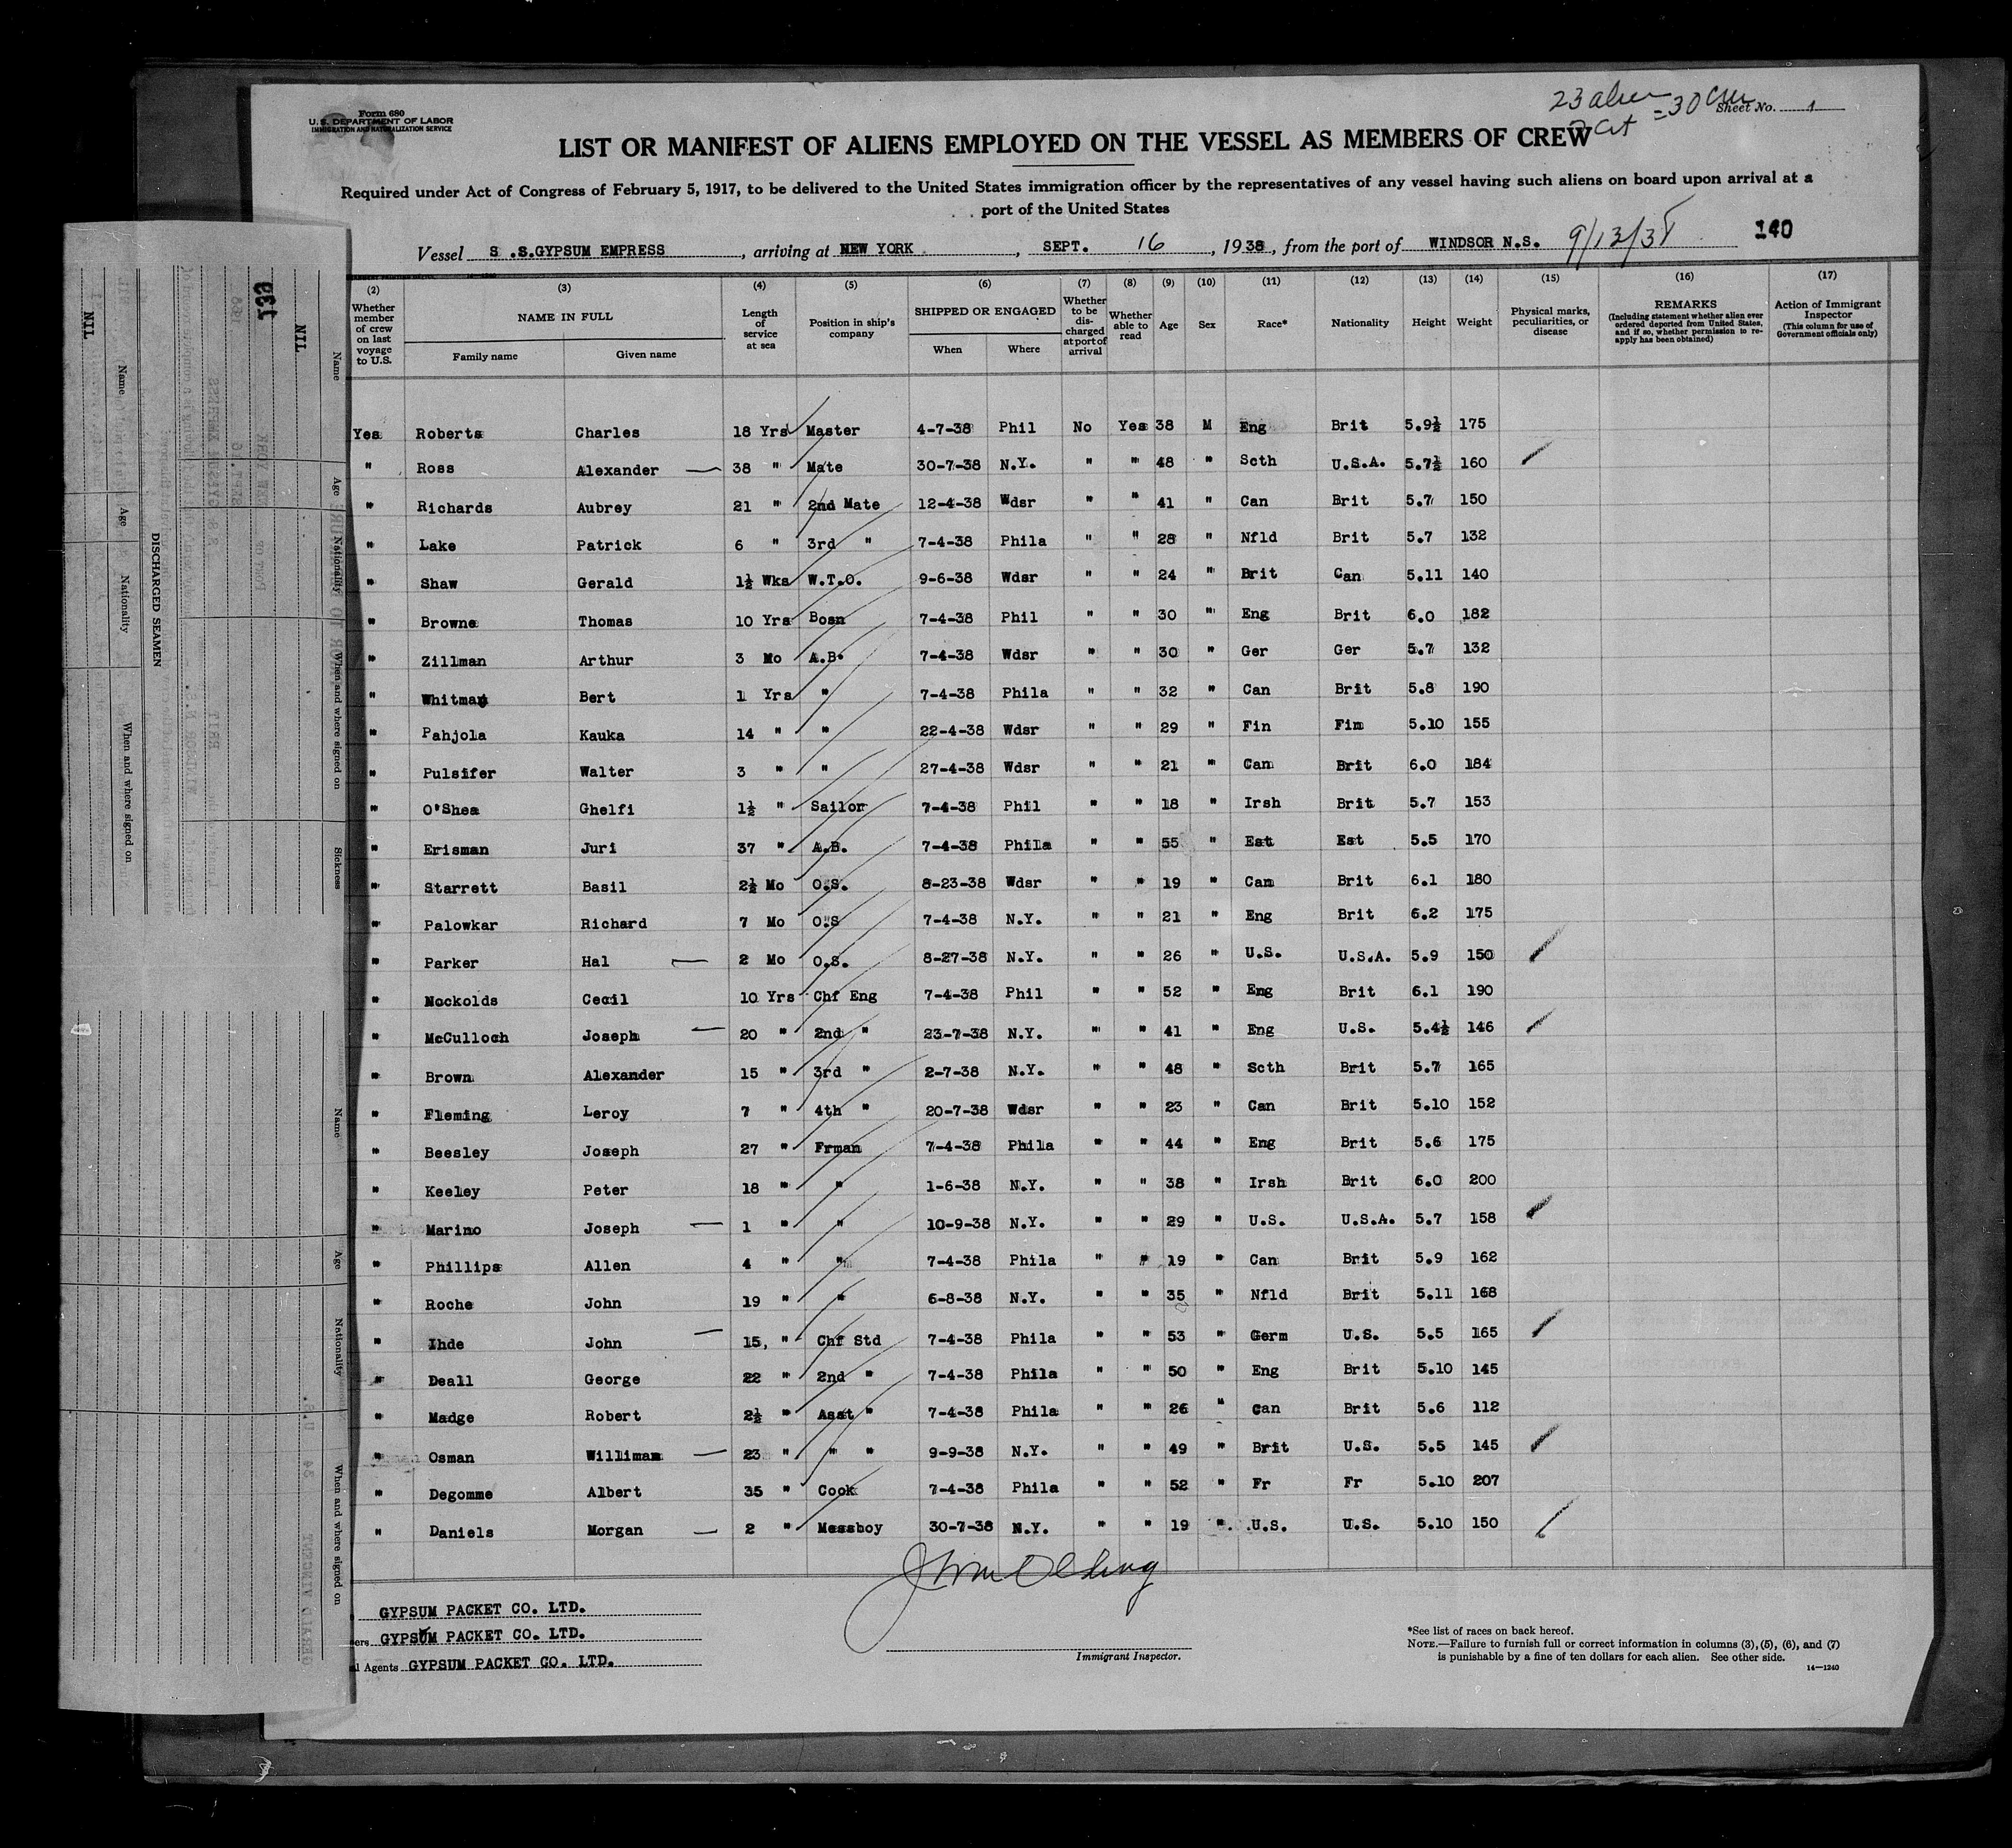 Form 680
U. S. DEPARTMENT OF LABOR
IMMIGRATION AND NATURALIZATION SERVICE
23 alien
= 30 crew
Cit
Sheet No. 1
LIST OR MANIFEST OF ALIENS EMPLOYED ON THE VESSEL AS MEMBERS OF CREW
Required under Act of Congress of February 5, 1917, to be delivered to the United States immigration officer by the representatives of any vessel having such aliens on board upon arrival at a
port of the United States
Vessel S .S.GYPSUM EMPRESS, arriving at NEW YORK, SEPT. 16, 1938, from the port of WINDSOR N.S. 9/13/38 140
(2) (3) (4) (5) (6) (7) (8) (9) (10) (11) (12) (13) (14) (15) (16) (17)
Whether member of crew on last voyage to U.S. NAME IN FULL Family name Given name Length of service at sea Position in ship's company SHIPPED OR ENGAGED When Where Whether to be discharged at port of arrival Whether able to read Age Sex Race* Nationality Height Weight Physical marks, peculiarities, or disease REMARKS (Including statement whether alien ever ordered deported from United States, and if so, whether permission to reapply has been obtained) Action of Immigrant Inspector (This column for use of Government officials only)
Yes Roberts Charles 18 Yrs Master 4-7-38 Phil No Yes 38 M Eng Brit 5.9½ 175
" Ross Alexander — 38 " Mate 30-7-38 N.Y. " " 48 " Scth U.S.A. 5.7½ 160
" Richards Aubrey 21 " 2nd Mate 12-4-38 Wdsr " " 41 " Can Brit 5.7 150
" Lake Patrick 6 " 3rd " 7-4-38 Phila " " 28 " Nfld Brit 5.7 132
" Shaw Gerald 1½ Wks W.T.O. 9-6-38 Wdsr " " 24 " Brit Can 5.11 140
" Browne Thomas 10 Yrs Bosn 7-4-38 Phil " " 30 " Eng Brit 6.0 182
" Zillman Arthur 3 Mo A.B. 7-4-38 Wdsr " " 30 " Ger Ger 5.7 132
" Whitman Bert 1 Yrs " 7-4-38 Phila " " 32 " Can Brit 5.8 190
" Pahjola Kauka 14 " " 22-4-38 Wdsr " " 29 " Fin Fin 5.10 155
" Pulsifer Walter 3 " " 27-4-38 Wdsr " " 21 " Can Brit 6.0 184
" O'Shea Ghelfi 1½ " Sailor 7-4-38 Phil " " 18 " Irsh Brit 5.7 153
" Erisman Juri 37 " A.B. 7-4-38 Phila " " 55 " Est Est 5.5 170
" Starrett Basil 2½ Mo O.S. 8-23-38 Wdsr " " 19 " Can Brit 6.1 180
" Palowkar Richard 7 Mo O.S 7-4-38 N.Y. " " 21 " Eng Brit 6.2 175
" Parker Hal — 2 Mo O.S. 8-27-38 N.Y. " " 26 " U.S. U.S.A. 5.9 150
" Mockolds Cecil 10 Yrs Chf Eng 7-4-38 Phil " " 52 " Eng Brit 6.1 190
" McCulloch Joseph — 20 " 2nd " 23-7-38 N.Y. " " 41 " Eng U.S. 5.4½ 146
" Brown Alexander 15 " 3rd " 2-7-38 N.Y. " " 48 " Scth Brit 5.7 165
" Fleming Leroy 7 " 4th " 20-7-38 Wdsr " " 23 " Can Brit 5.10 152
" Beesley Joseph 27 " Frman 7-4-38 Phila " " 44 " Eng Brit 5.6 175
" Keeley Peter 18 " " 1-6-38 N.Y. " " 38 " Irsh Brit 6.0 200
" Marino Joseph — 1 " " 10-9-38 N.Y. " " 29 " U.S. U.S.A. 5.7 158
" Phillips Allen 4 " " 7-4-38 Phila " " 19 " Can Brit 5.9 162
" Roche John 19 " " 6-8-38 N.Y. " " 35 " Nfld Brit 5.11 168
" Ihde John — 15, " Chf Std 7-4-38 Phila " " 53 " Germ U.S. 5.5 165
" Deall George 22 " 2nd " 7-4-38 Phila " " 50 " Eng Brit 5.10 145
" Madge Robert 2½ " Asst " 7-4-38 Phila " " 26 " Can Brit 5.6 112
" Osman Willimam — 23 " " " 9-9-38 N.Y. " " 49 " Brit U.S. 5.5 145
" Degomme Albert 35 " Cook 7-4-38 Phila " " 52 " Fr Fr 5.10 207
" Daniels Morgan — 2 " Messboy 30-7-38 N.Y. " " 19 " U.S. U.S. 5.10 150
GYPSUM PACKET CO. LTD.
ers GYPSUM PACKET CO. LTD.
l Agents GYPSUM PACKET CO. LTD.
Immigrant Inspector.
*See list of races on back hereof.
NOTE.—Failure to furnish full or correct information in columns (3), (5), (6), and (7)
is punishable by a fine of ten dollars for each alien. See other side.
14—1240
NIL
139
NIL
DISCHARGED SEAMEN
Name Age Nationality When and where signed on
Name Age Nationality When and where signed on Sickness
Name Age Nationality When and where signed on